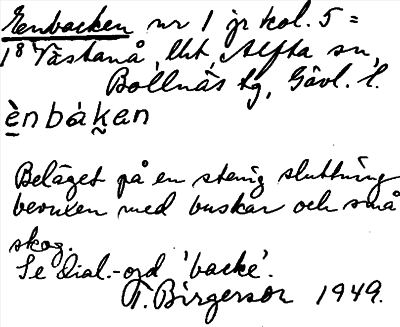 Enbacken nr 1 jr kol. 5 =
18 Västanå, lht, Alfta sn,
Bollnäs tg, Gävl. l.
è̲nbákan
Beläget på en stenig sluttning
bevuxen med buskar och små
skog.
Se dial.-ord 'backe'.
T. Birgerson 1949.